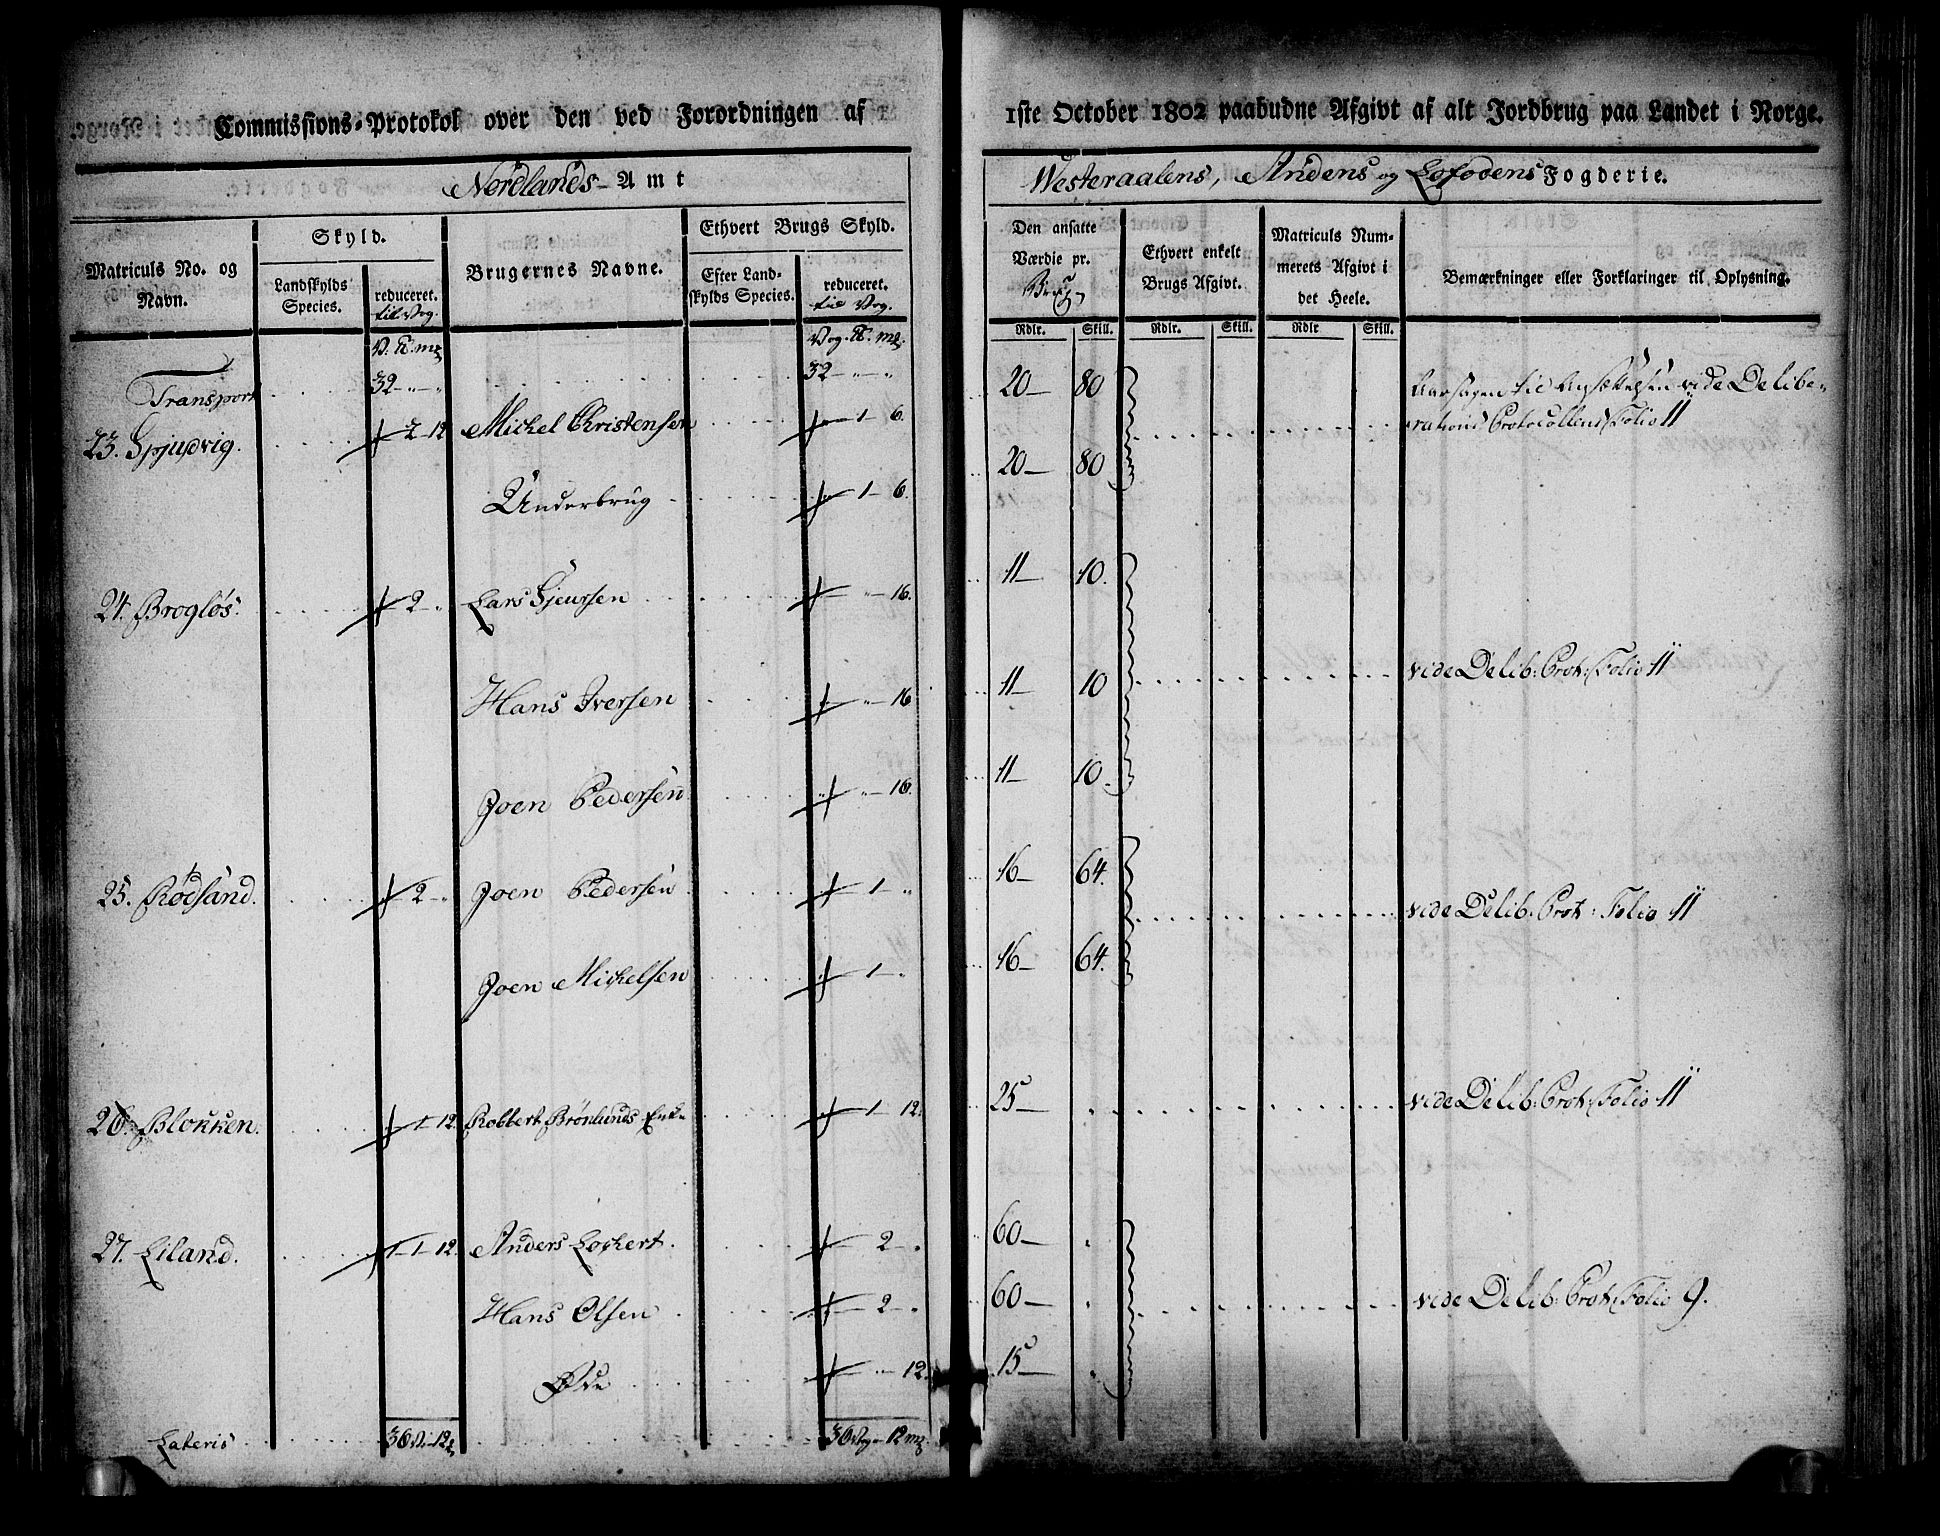 Commissions-Protokol over den ved Forordningen af 1ste October 1802 paabudne Afgivt af alt Jordbrug paa Landet i Norge.
Nordlands Amt Westeraalens, Andens og Lofodens Fogderie.
Matriculs No. og Navn. Skyld. Landskylds Species. reduceret. til Vog. Brugernes Navne. Ethvert Brugs Skyld. Efter Landskylds Species. reduceret. til Vog. Den ansatte Værdie pr. Brug Ethvert enkelt Brugs Afgivt. Matriculs Nummerets Afgivt i det Heele. Bemærkninger eller Forklaringer til Oplysning.
Rdlr. Skill. Rdlr. Skill. Rdlr Skill.
Transport 32 " " 32 " "
23. 2 12 Michel Christensen 1 6. 20 80 vide Delibe-
rations Protocollens Folio 11
Underbrug 1 6. 20 80
24. Brogløs. 2 " Lars Sjeursen " 16. 11 10.
Hans Iversen " 16 11 10 vide Delib: Prot: Folio 11
Joen Pedersen " 16. 11 10.
25. Rødsand. 2 " Joen Pedersen 1 " 16 64. vide Delib: Prot: Folio 11
Joen Michelsen 1 " 16 64.
26. Blokken. 1 12 Robbert Brönlunds Enke 1 12. 25 vide Delib: Prot: Folio 11
27. Liland. 1 12 Anders Lockert. 2 " 60
Hans Olsen 2 " 60 vide Delib: Prot: Folio 9.
Øde " 12. 15
Lateris 36 V. 12 36 Vog 12 mk.